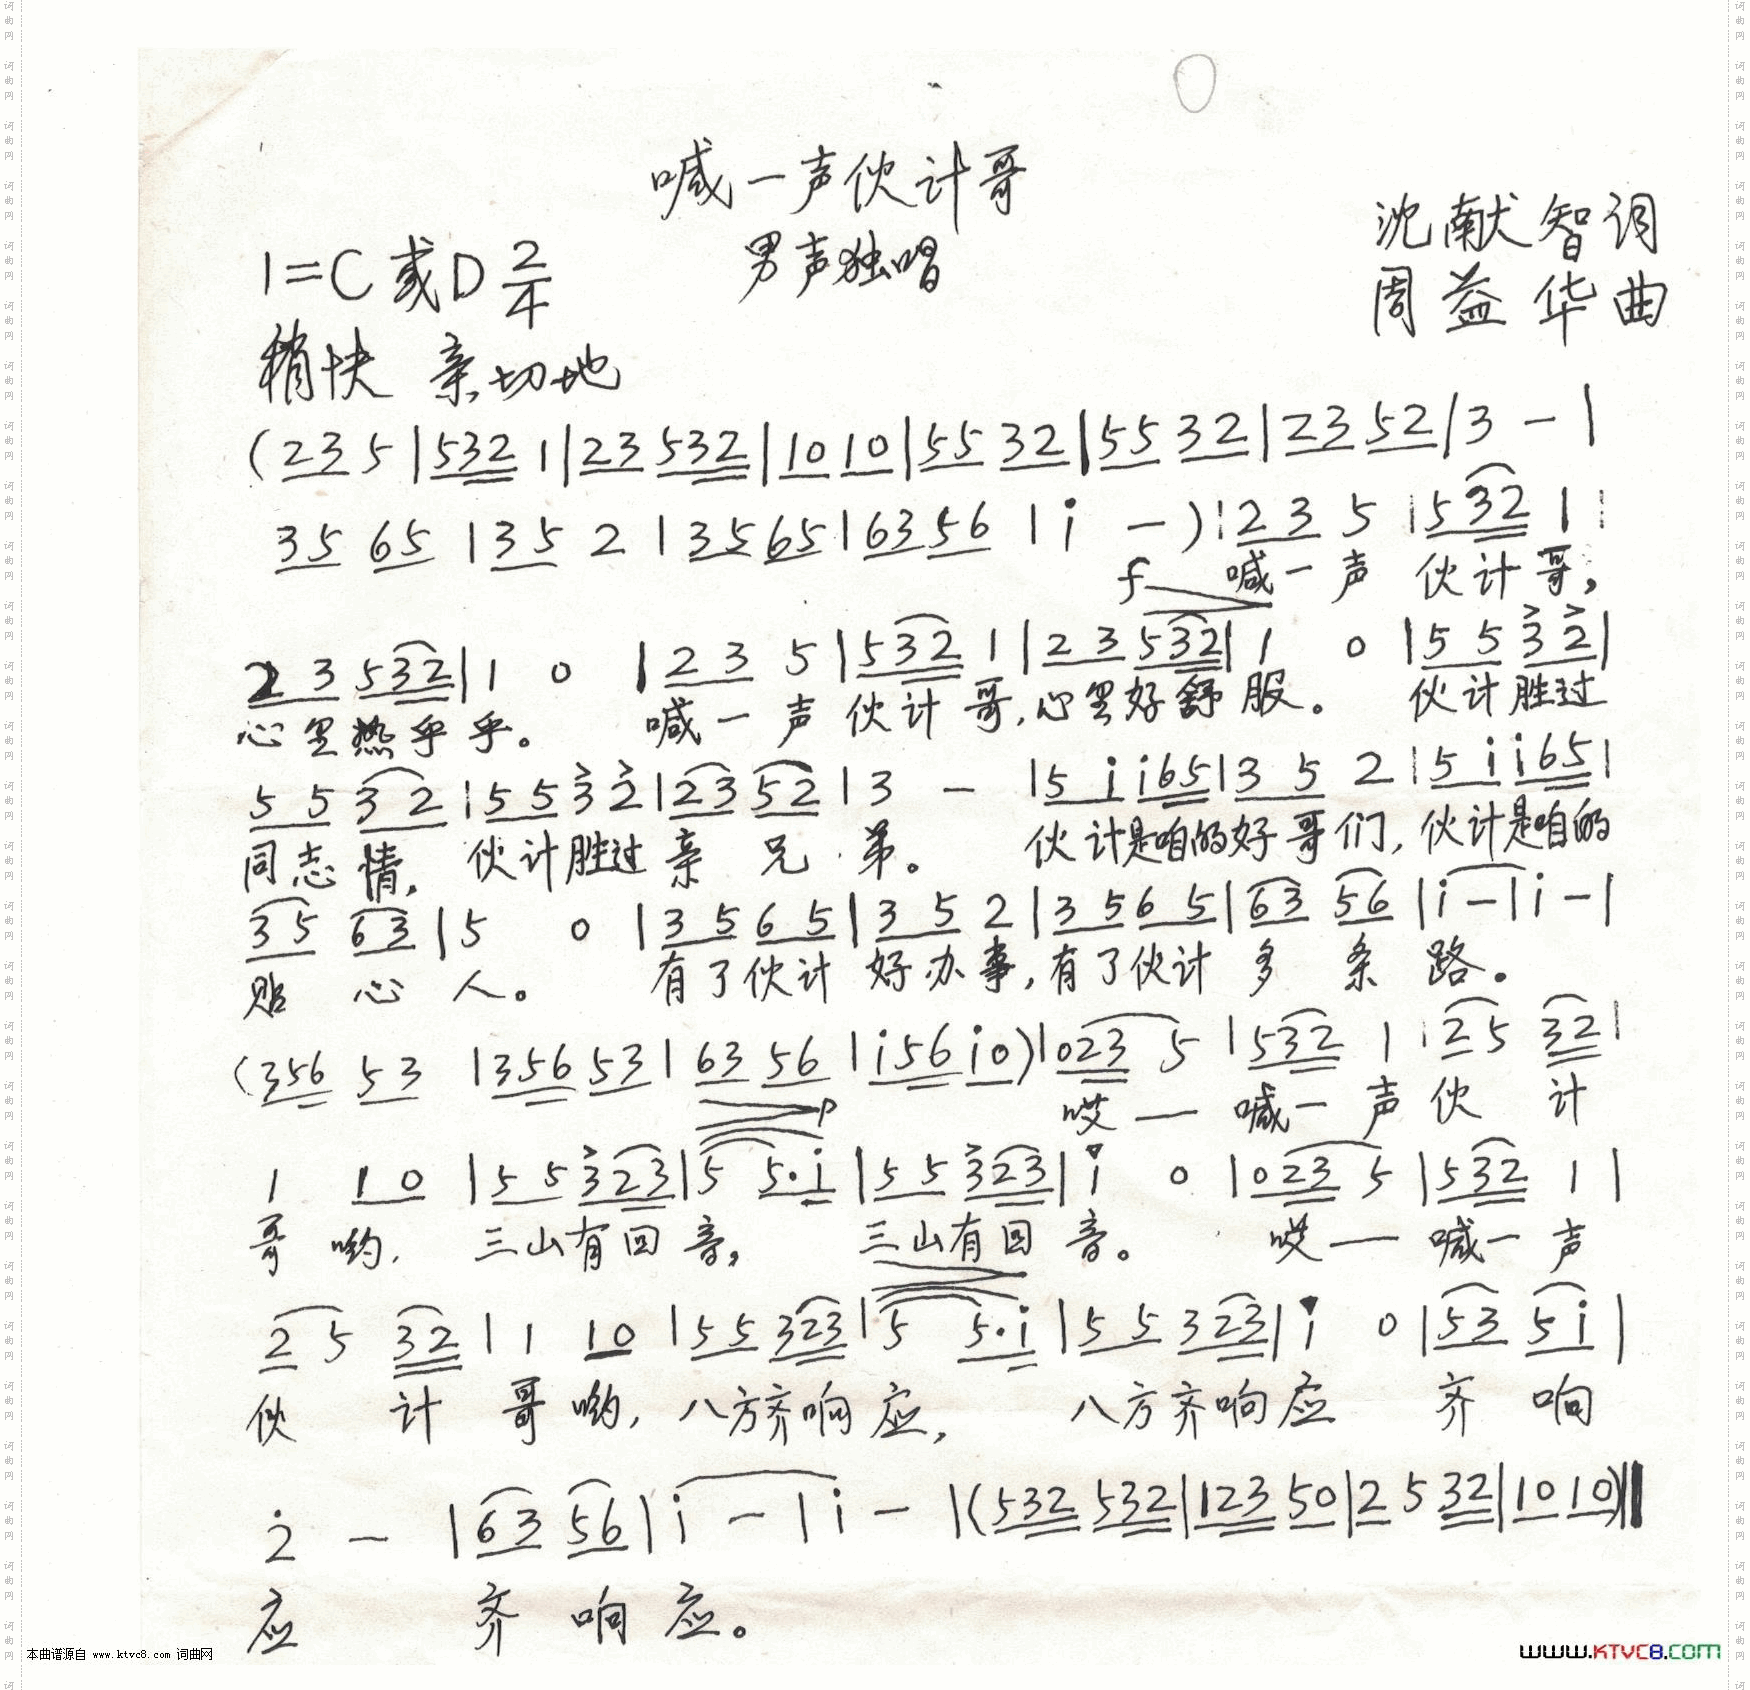 喊一声伙计哥
男声独唱
沈献智词
周益华曲
1=C或D 2/4
稍快 亲切地
(2 3 5 | 5 3 2 1 | 2 3 5 3 2 | 1 0 1 0 | 5 5 3 2 | 5 5 3 2 | 2 3 5 2 | 3 - |
3 5 6 5 | 3 5 2 | 3 5 6 5 | 6 3 5 6 | i - ) | 2 3 5 | 5 3 2 1 |
f 喊一声 伙计哥,
2 3 5 3 2 | 1 0 | 2 3 5 | 5 3 2 1 | 2 3 5 3 2 | 1 0 | 5 5 3 2 |
心里热乎乎。 喊一声伙计哥,心里好舒服。 伙计胜过
5 5 3 2 | 5 5 3 2 | 2 3 5 2 | 3 - | 5 i i 6 5 | 3 5 2 | 5 i i 6 5 |
同志情, 伙计胜过亲兄弟。 伙计是咱的好哥们,伙计是咱的
3 5 6 3 | 5 0 | 3 5 6 5 | 3 5 2 | 3 5 6 5 | 6 3 5 6 | i - | i - |
贴心人。 有了伙计好办事,有了伙计多条路。
(3 5 6 5 3 | 3 5 6 5 3 | 6 3 5 6 | i 5 6 i 0) | 0 2 3 5 | 5 3 2 1 | 2 5 3 2 |
p 哎— 喊一声伙计
1 1 0 | 5 5 3 2 3 | 5 5·i | 5 5 3 2 3 | i 0 | 0 2 3 5 | 5 3 2 1 |
哥哟, 三山有回音, 三山有回音。 哎— 喊一声
2 5 3 2 | 1 1 0 | 5 5 3 2 3 | 5 5·i | 5 5 3 2 3 | i 0 | 5 3 5 i |
伙计哥哟,八方齐响应, 八方齐响应 齐响
2 - | 6 3 5 6 | i - | i - | (5 3 2 5 3 2 | 1 2 3 5 0 | 2 5 3 2 | 1 0 1 0) ‖
应 齐响应。
本曲谱源自 www.ktvc8.com 词曲网
www.KTVC8.COM